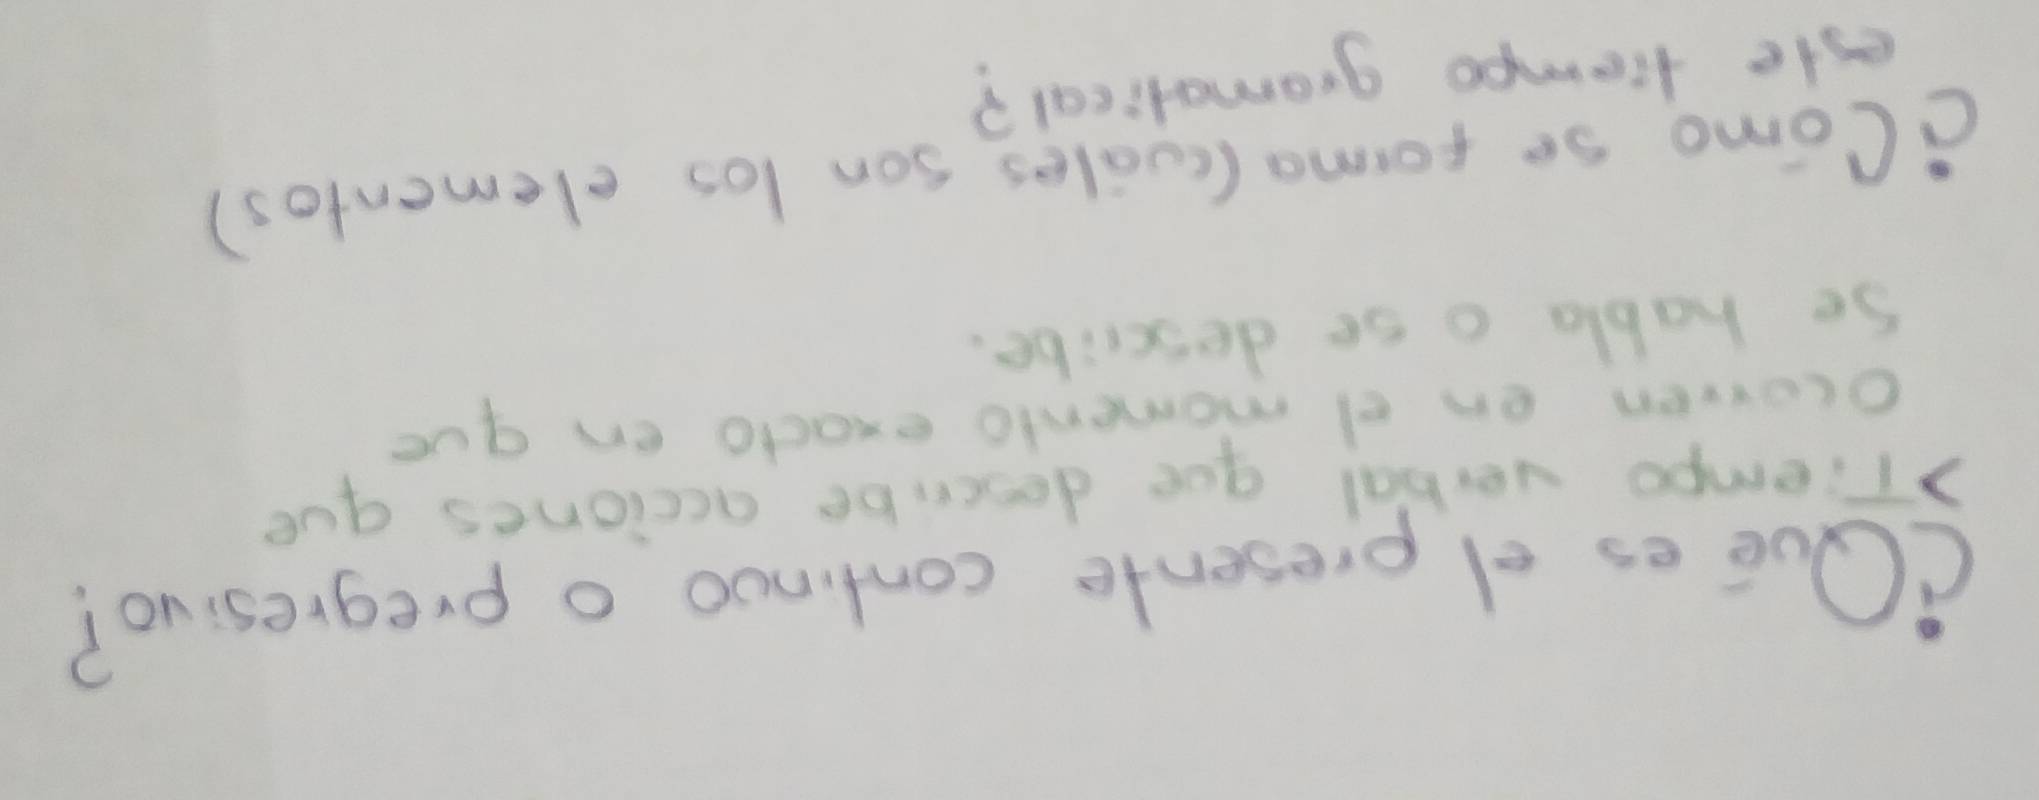 ¿Qué es el presente continuo o pregresivo?
>Tiempo verbal que describe acciones que
ocurren en el momento exacto en que
se habla o se describe.
¿Cómo se forma (cuáles son los elementos)
este tiempo gramatical?